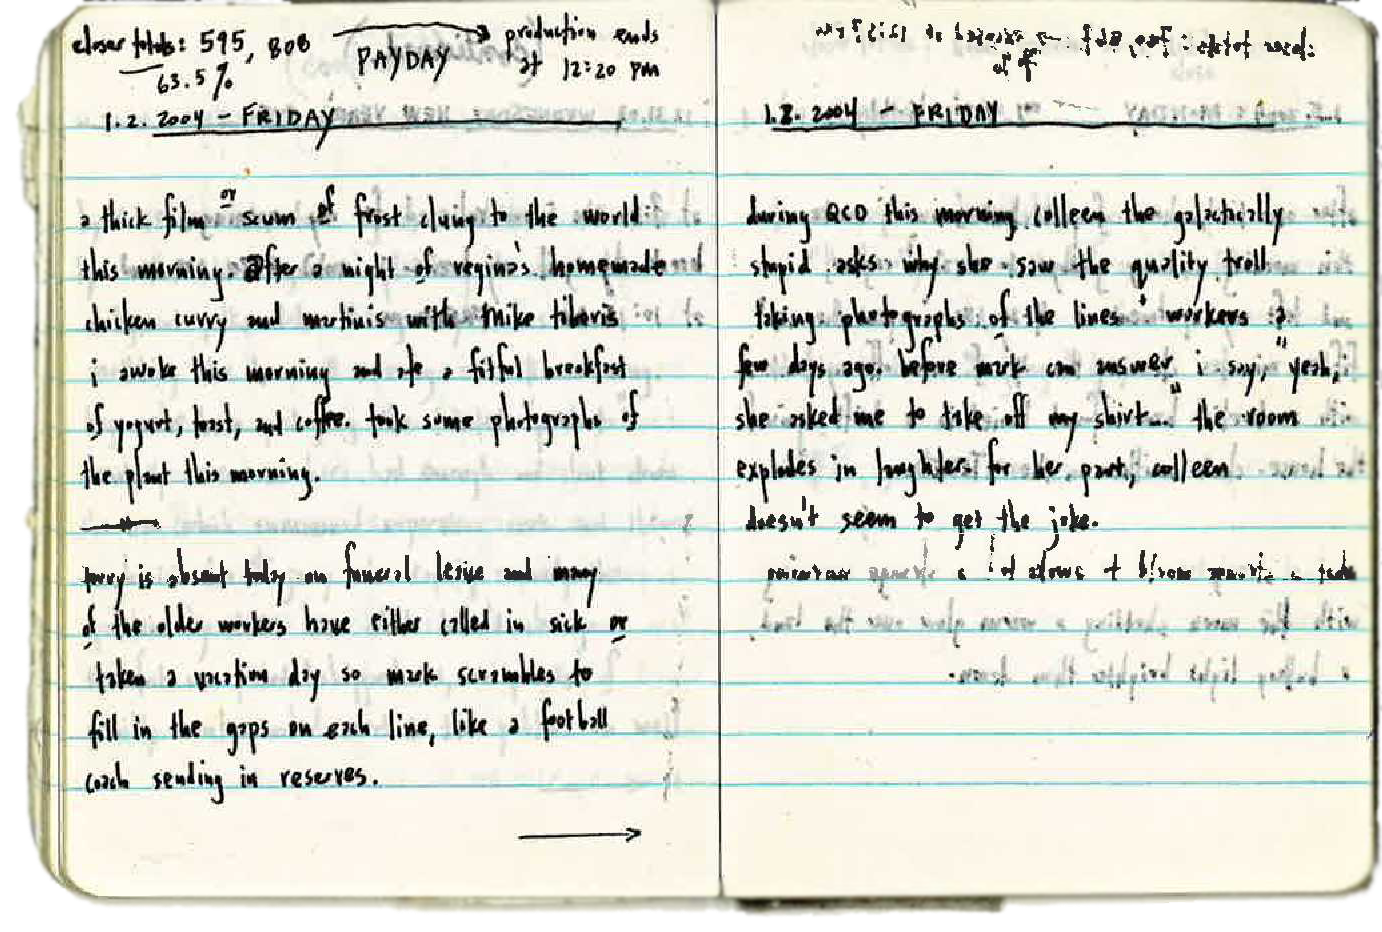 closer totals: 595, 808
63.5%
PAYDAY
production ends
at 12:20 PM
1.2.2004 - FRIDAY
a thick film or scum of frost clung to the world
this morning. after a night of regina's homemade
chicken curry and martinis with mike
i awoke this morning and ate a fitful breakfast
of yogurt, toast, and coffee. took some photographs of
the plant this morning.
terry is absent today on funeral leave and many
of the older workers have either called in sick or
taken a vacation day so mark scrambles to
fill in the gaps on each line, like a football
coach sending in reserves.
1.2.2004 - FRIDAY
during QCD this morning colleen the galactically
stupid asks why she saw the quality troll
taking photographs of the lines' workers a
few days ago. before mark can answer i say, "yeah,
she asked me to take off my shirt..." the room
explodes in laughter. for her part, colleen
doesn't seem to get the joke.